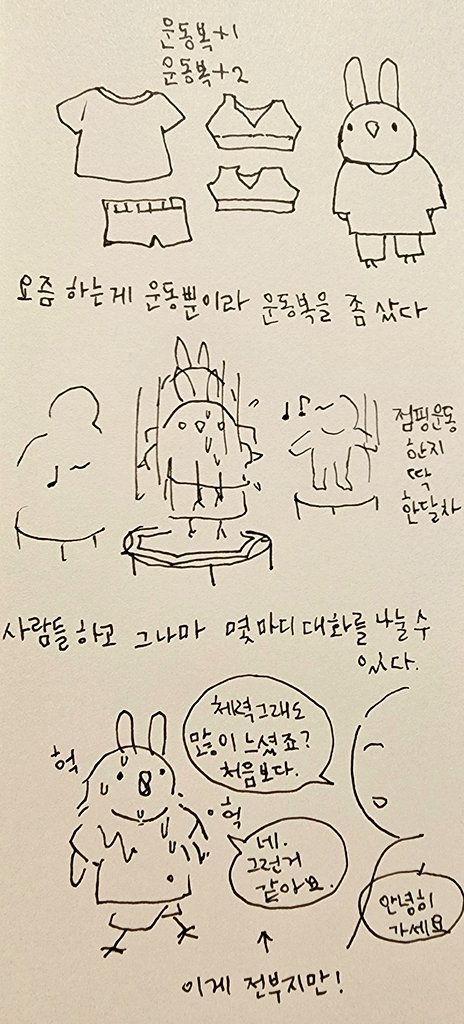 운동복+1
운동복+2
요즘 하는게 운동뿐이라 운동복을 좀 샀다
점핑운동
한지
딱
한달차
사람들하고 그나마 몇마디 대화를 나눌 수
있다.
체력그래도
많이 느셨죠?
처음보다.
헉
헉
네.
그런거
같아요.
안녕히
가세요
이게 전부지만!